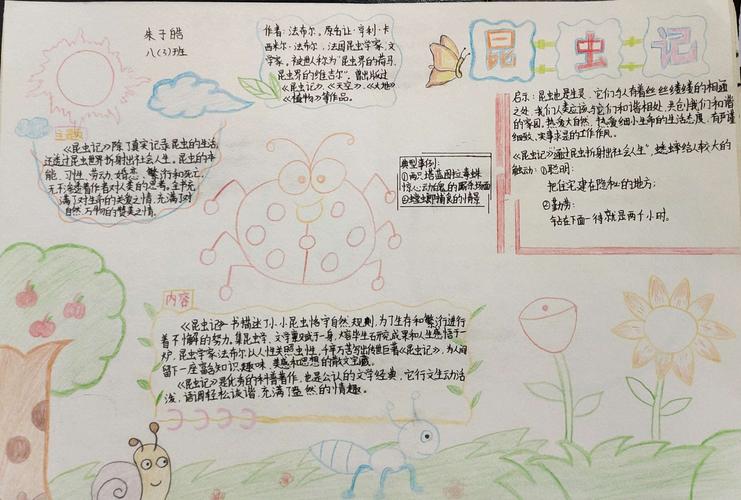 朱子皓
八(3)班
作者:法布尔,原名让·亨利·卡
西米尔·法布尔,法国昆虫学家、文
学家,被世人称为"昆虫界的荷马、
昆虫界的维吉尔"。曾出版过
《昆虫记》、《天空》、《大地》
《植物》等作品。
昆虫记
启示:昆虫也是生灵,它们与人有着丝丝缕缕的相通
之处,我们人类应该与它们和谐相处,共创我们和谐
的家园。热爱大自然,热爱细小生命的生活态度,有严谨
细致,实事求是的工作作风。
《昆虫记》"通过昆虫折射出社会人生",蟋蟀给人较大的
触动:①聪明:
把住宅建在隐秘的地方;
②勤劳:
钻在下面一待就是两个小时。
《昆虫记》除了真实记录昆虫的生活,
还透过昆虫世界折射出社会人生。昆虫的本
能、习性、劳动、婚恋、繁衍和死亡,
无不渗透着作者对人类的思考。全书充
满了对生命的关爱之情,充满了对
自然万物的赞美之情。
典型事例:
内容
《昆虫记》一书描述了小小昆虫恪守自然规则,为了生存和繁衍进行
着不懈的努力。集昆虫学、文学
昆虫学家法布尔以人性关照虫性,千辛万苦写出传世巨著《昆虫记》,为人间
留下一座富含知识、趣味、美感和思想的散文宝藏。
《昆虫记》是优秀的科普著作,也是公认的文学经典,它行文生动活
泼,语调轻松诙谐,充满了盎然的情趣。